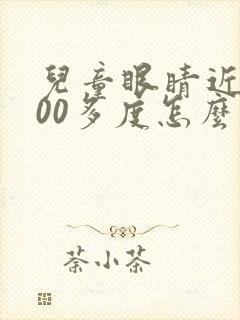 兒童眼睛近
00多度怎麼
荼小茶